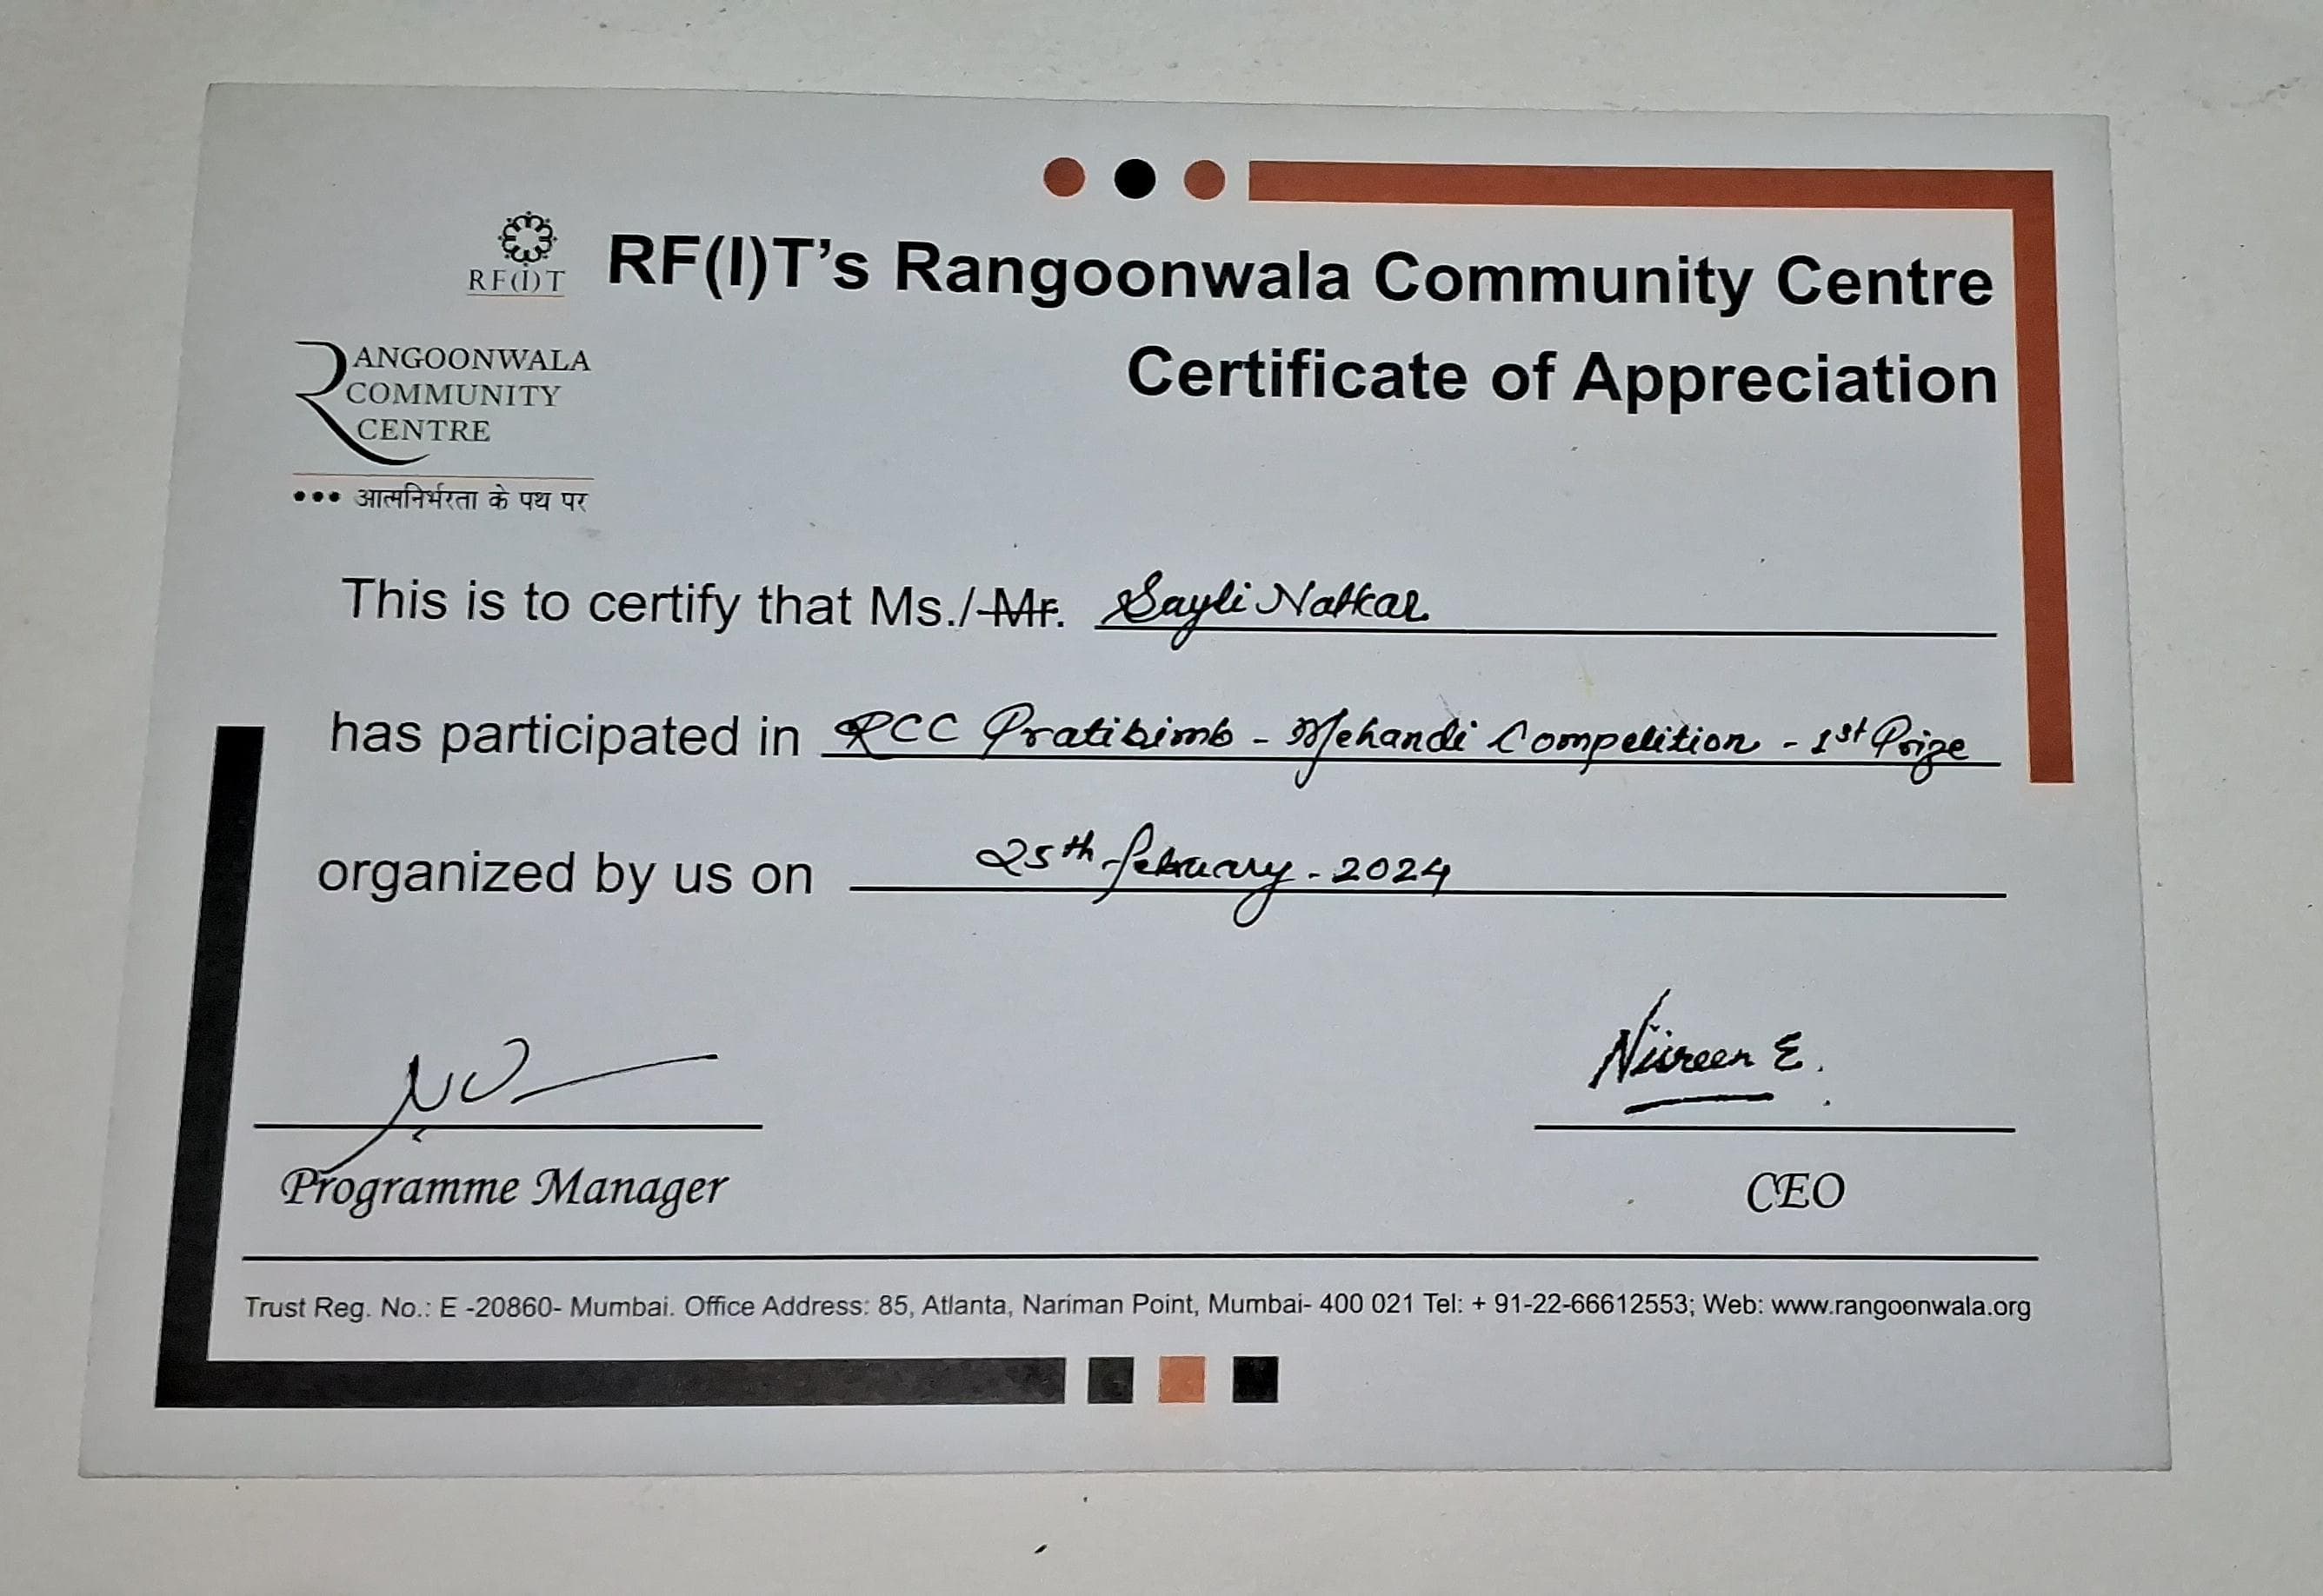 RF(I)T
RF(I)T's Rangoonwala Community Centre
RANGOONWALA
COMMUNITY
CENTRE
Certificate of Appreciation
••• आत्मनिर्भरता के पथ पर
This is to certify that Ms./Mr. Sayli Natkar
has participated in RCC Pratibimb - Mehandi Competition - 1st Prize
organized by us on 25th february - 2024
E.
Programme Manager
CEO
Trust Reg. No.: E -20860- Mumbai. Office Address: 85, Atlanta, Nariman Point, Mumbai- 400 021 Tel: + 91-22-66612553; Web: www.rangoonwala.org